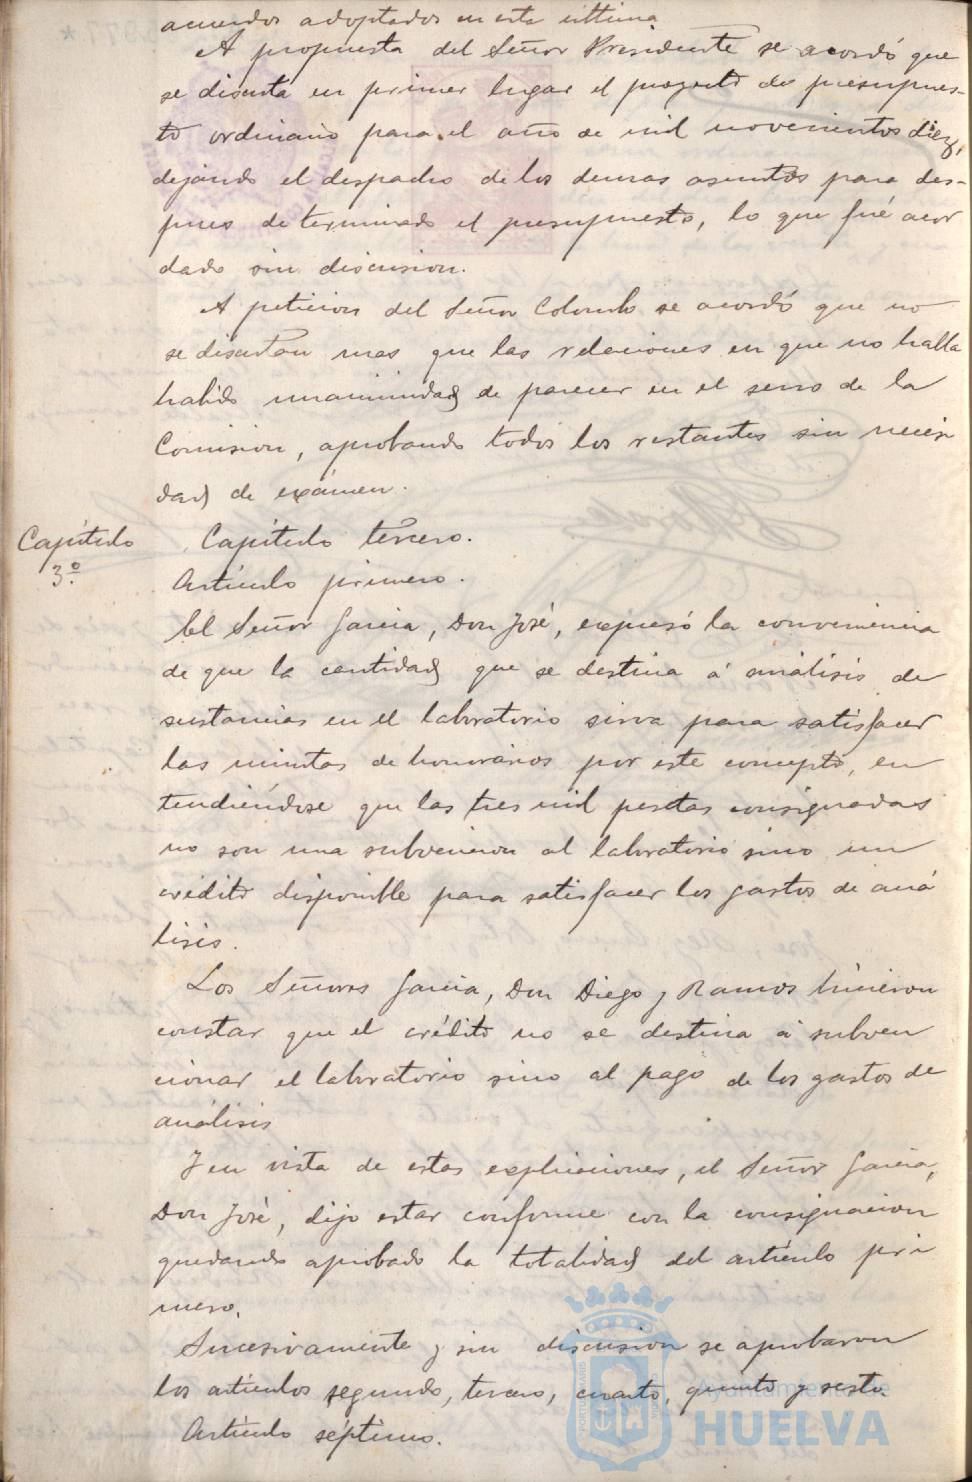 acuerdos adoptados en esta última
A propuesta del Señor Presidente se acordó que
se discuta en primer lugar el proyecto de presupues-
to ordinario para el año de mil novecientos diez,
dejando el despacho de los demas asuntos para des-
pues de terminado el presupuesto, lo que fué acor
dado sin discusion.
A peticion del Señor Colombo se acordó que no
se discutan mas que las relaciones en que no halla
habido unanimidad de parecer en el seno de la
Comision, aprobando todos los restantes sin necesi
dad de exámen.
Capítulo
3º
Capítulo tercero.
Artículo primero.
El Señor Garcia, Don José, expresó la conveniencia
de que la cantidad que se destina á análisis de
sustancias en el laboratorio sirva para satisfacer
las minutas de honorarios por este concepto, en
tendiéndose que las tres mil pesetas consignadas
no son una subvencion al laboratorio sino un
crédito disponible para satisfacer los gastos de aná
lisis.
Los Señores Garcia, Don Diego y Ramos hicieron
constar que el crédito no se destina á subven
cionar el laboratorio sino al pago de los gastos de
análisis
Y en vista de estas explicaciones, el Señor Garcia,
Don José, dijo estar conforme con la consignacion
quedando aprobado la totalidad del artículo pri
mero.
Sucesivamente y sin discusion se aprobaron
los artículos segundo, tercero, cuarto, quinto y sesto
Artículo séptimo.
Ayuntamiento de
HUELVA